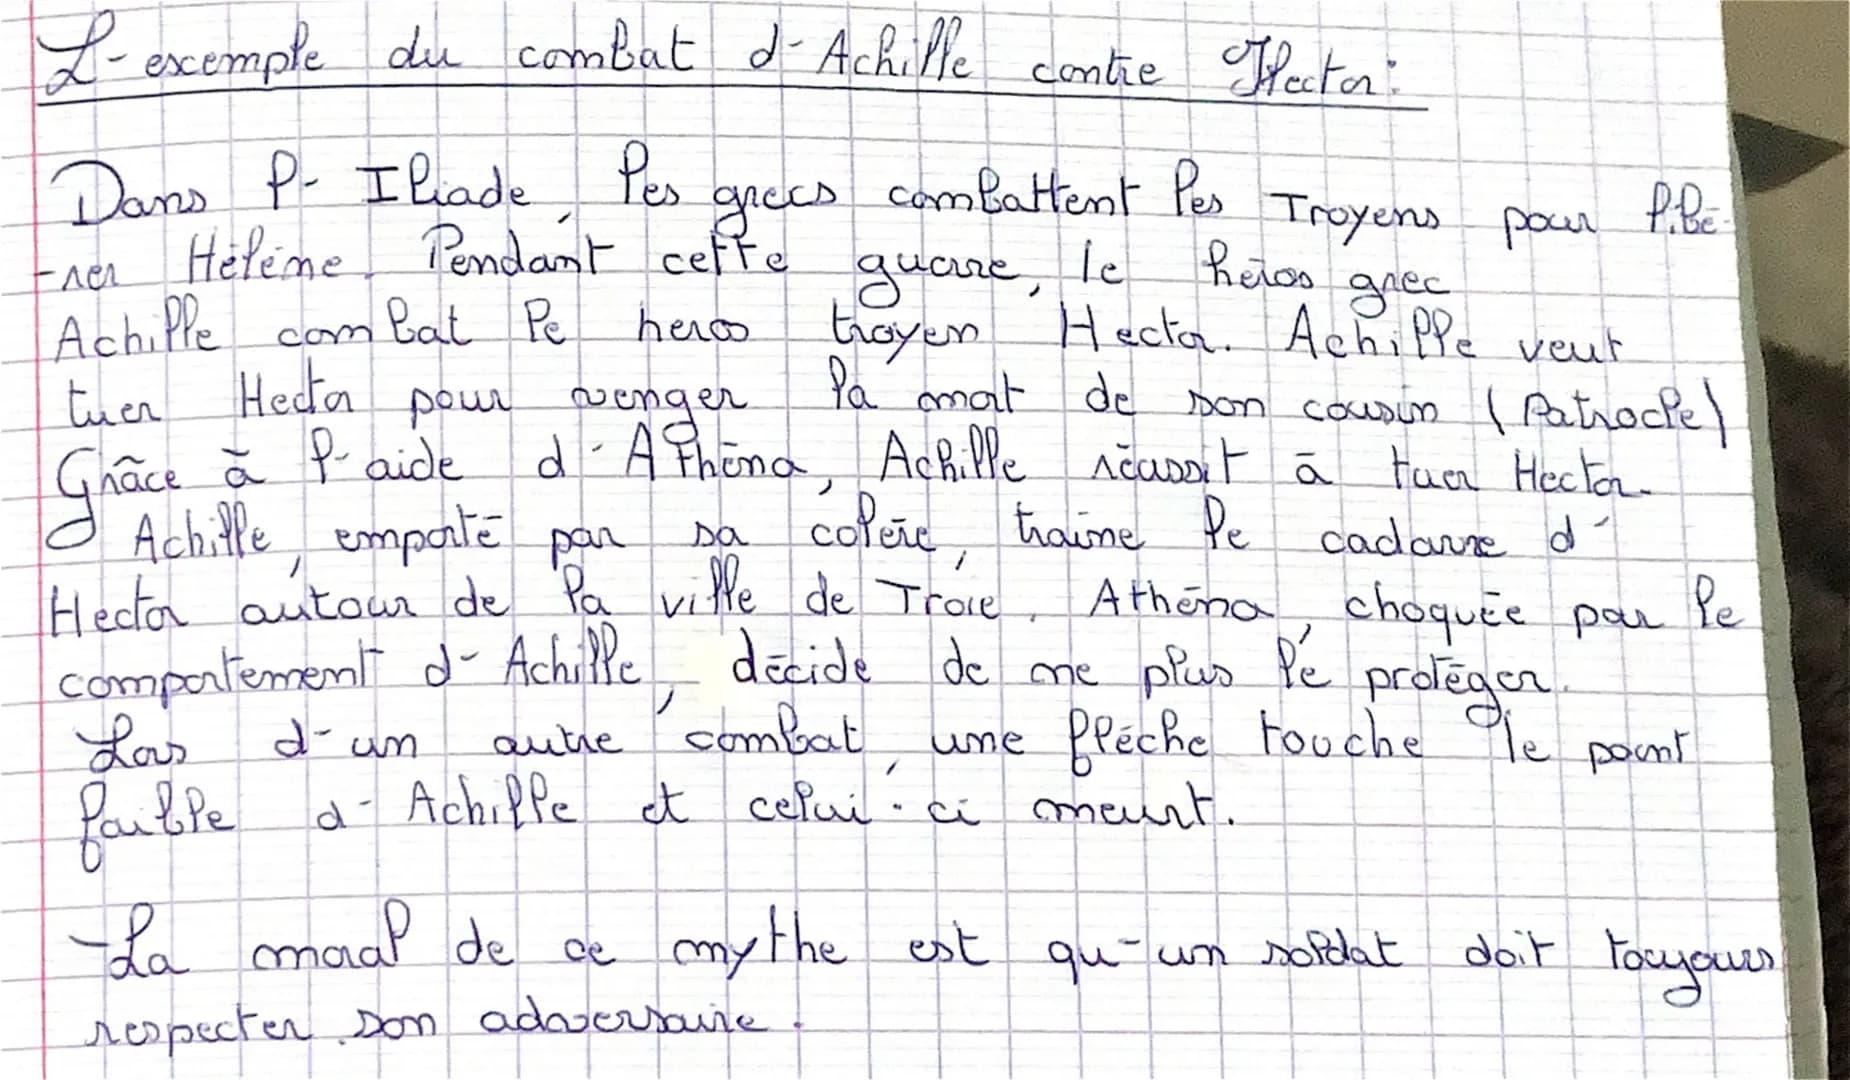 L'exemple du combat d'Achille contre Hector:
Dans l'Iliade, les grecs combattent les Troyens pour libé-
-rer Hélène. Pendant cette guerre, le héros grec
Achille combat le heros troyen Hector. Achille veut
tuer Hector pour venger la mort de son cousin (Patrocle)
Grâce à l'aide d'Athéna, Achille réussit à tuer Hector.
Achille, emporté par sa colère, traine le cadavre d'
Hector autour de la ville de Troie. Athéna, choquée par le
comportement d'Achille, décide de ne plus le protéger.
Lors d'un autre combat, une flèche touche le point
faible d'Achille et celui-ci meurt.
-La moral de ce mythe est qu'un soldat doit toujours
respecter son adversaire.